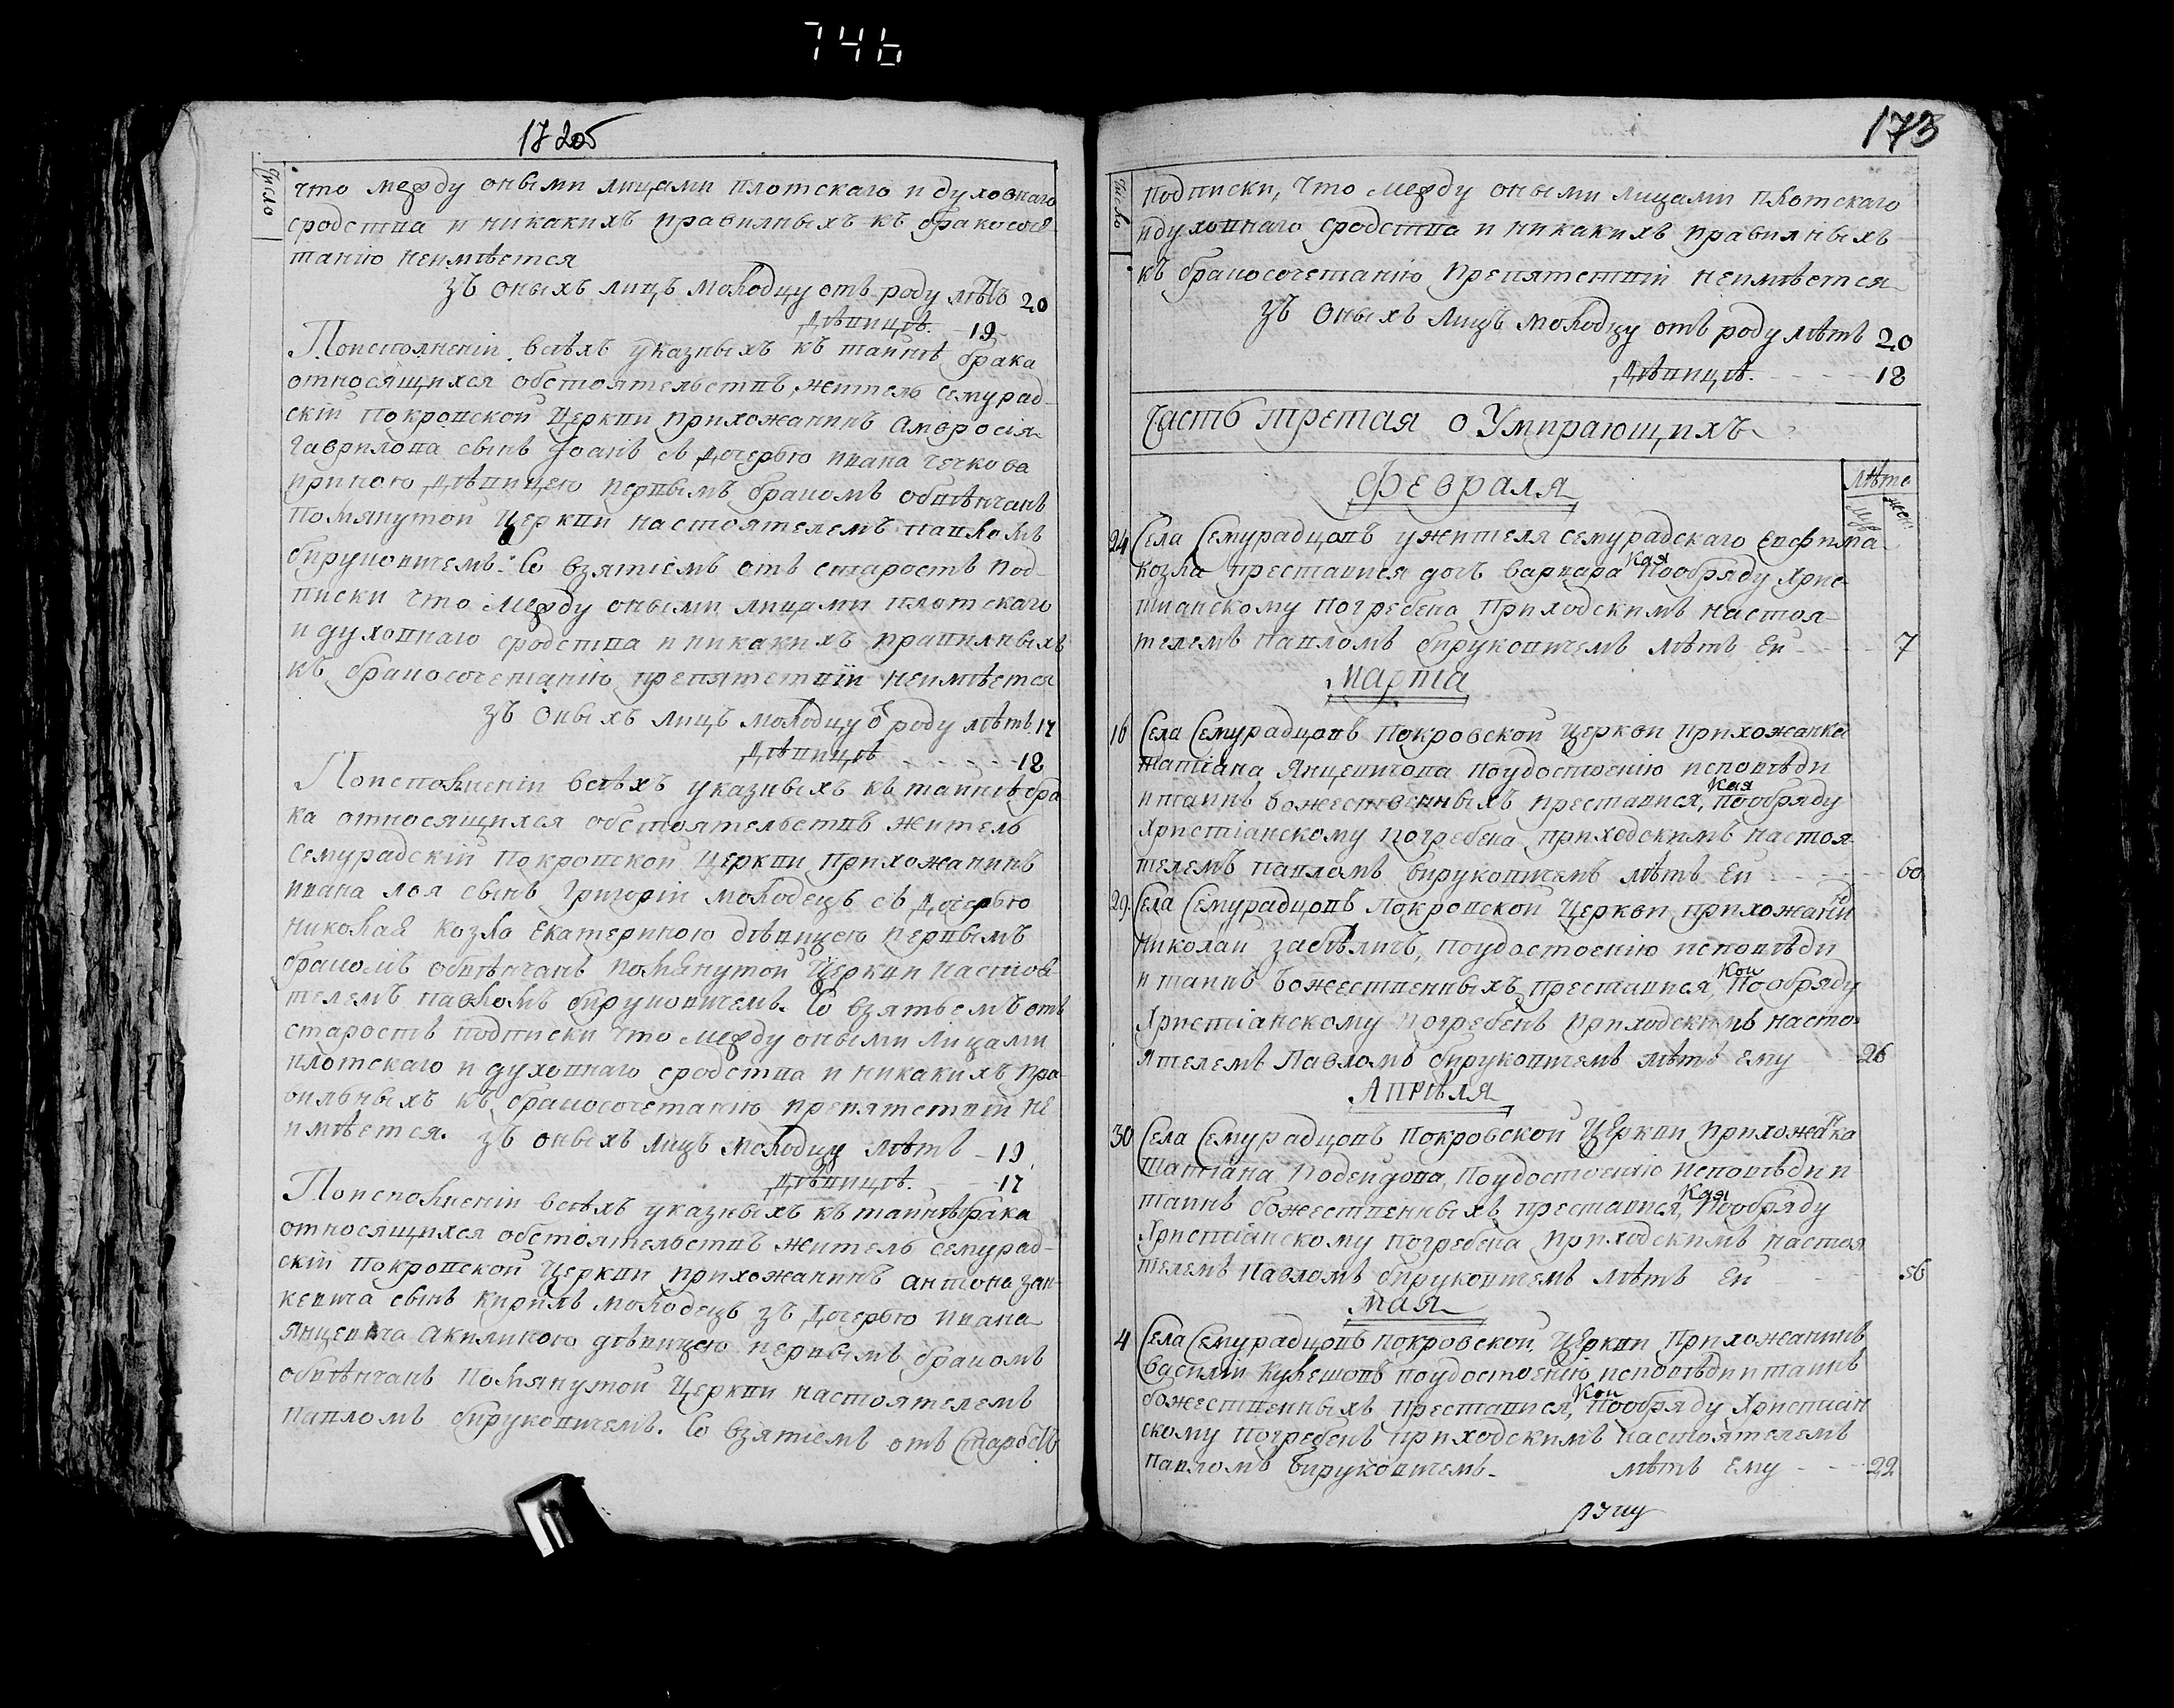 746
172об
Число
что между оными лицами плотскаго и духовнаго
сродства и никакихъ правилныхъ къ бракосоче-
танію неимѣется
зъ оныхъ лицъ молодцу отъ роду лѣтъ 20
дѣвицѣ. 19
Поисполненіи всѣхъ указныхъ къ тайнѣ брака
относящихся обстоятельствъ, житель семурад-
скій покровской церкви прихожанинъ Амвросія
Гаврилова сынъ Іоанъ съ дочерью ивана
дѣвицею первымъ бракомъ обвѣнчанъ
помянутой церкви настоятелемъ павломъ
бируковичемъ. Со взятіемъ отъ старостъ под-
писки что между оными лицами плотскаго
и духовнаго сродства и никакихъ правилныхъ
къ бракосочетанію препятствій неимѣется
зъ оныхъ лицъ молодцу ѿ роду лѣтъ 17
дѣвицѣ 18
Поисполненіи всѣхъ указныхъ къ тайнѣ бра-
ка относящихся обстоятельствъ житель
семурадскій покровской церкви прихожанинъ
ивана лоя сынъ григорій молодецъ съ дочерью
николая козла екатериною дѣвицею первымъ
бракомъ обвѣнчанъ помянутой церкви настоя-
телемъ павломъ бируковичемъ. Со взятьемъ отъ
старостъ подписки что между оными лицами
плотскаго и духовнаго сродства и никакихъ пра-
вильныхъ къ бракосочетанію препятствій не
имѣется. зъ оныхъ лицъ молодцу лѣтъ 19
дѣвицѣ. 17
Поисполненіи всѣхъ указныхъ къ тайнѣ брака
относящихся обстоятельствъ житель семурад-
скій покровской церкви прихожанинъ антона зан-
кевича сынъ кирилъ молодецъ зъ дочерью ивана
янцевича акилиною дѣвицею первымъ бракомъ
обвѣнчанъ помянутой церкви настоятелемъ
павломъ бируковичемъ. Со взятіемъ отъ старостъ
173
Число
подписки, что между оными лицами плотскаго
и духовнаго сродства и никакихъ правилныхъ
къ бракосочетанію препятствій неимѣется
зъ оныхъ лицъ молодцу отъ роду лѣтъ 20
дѣвицѣ. 18
Часть третая о Умирающихъ
Февраля
лѣта
муж жен:
24 Села Семурадцовъ ужителя семурадскаго евфима
козла преставися дочъ варвара кая пообряду хрис-
тианскому погребена приходскимъ настоя-
телемъ павломъ бируковичемъ лѣтъ ей 7
Марта
16 Села Семурадцовъ Покровской церкви прихожанка
татіана Янцевичова поудостоенію исповѣди
и таинъ божественныхъ преставися, кая пообряду
христіанскому погребена приходскимъ настоя-
телемъ павломъ бируковичемъ лѣтъ ей 60
29. Села Семурадцовъ Покровской церкви прихожанинъ
николай забѣличъ, поудостоенію исповѣди
и таинъ божественныхъ преставися, кои пообряду
христіанскому погребенъ приходскимъ насто-
ятелемъ Павломъ бируковичемъ лѣтъ ему 26
Апрѣля
30 Села Семурадцовъ Покровской церкви прихожанка
татіана поудостоенію исповѣди и
таинъ божественныхъ преставися, кая пообряду
христіанскому погребена приходскимъ настоя
телемъ павломъ бируковичемъ лѣтъ ей 56
мая
4 Села Семурадцовъ покровской церкви прихожанинъ
василій кулешовъ поудостоенію исповѣди и таинъ
божественныхъ преставися, кои пообряду христиан
скому погребенъ приходскимъ настоятелемъ
павломъ бируковичемъ. лѣтъ ему 22